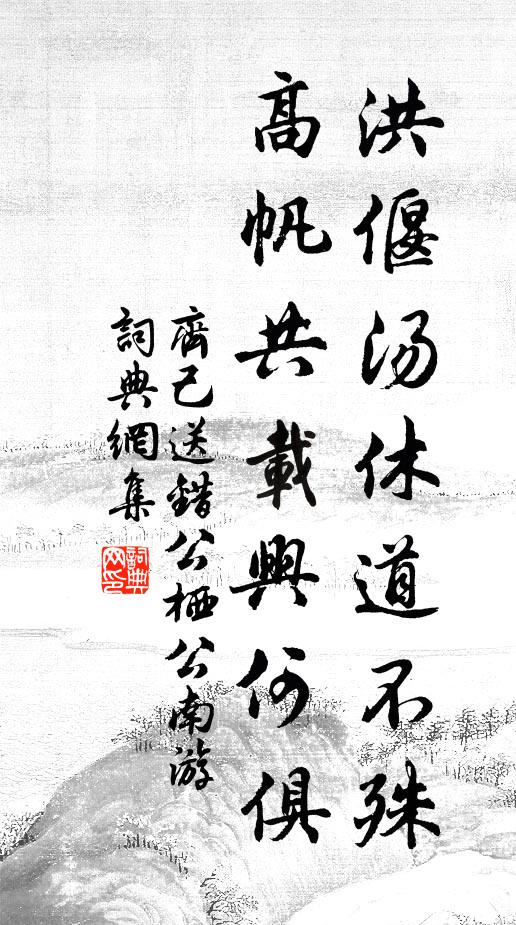 洪偃汤休道不殊
高帆共載興何俱
齊己送錯公栖公南游
詞典網集
詞典网印